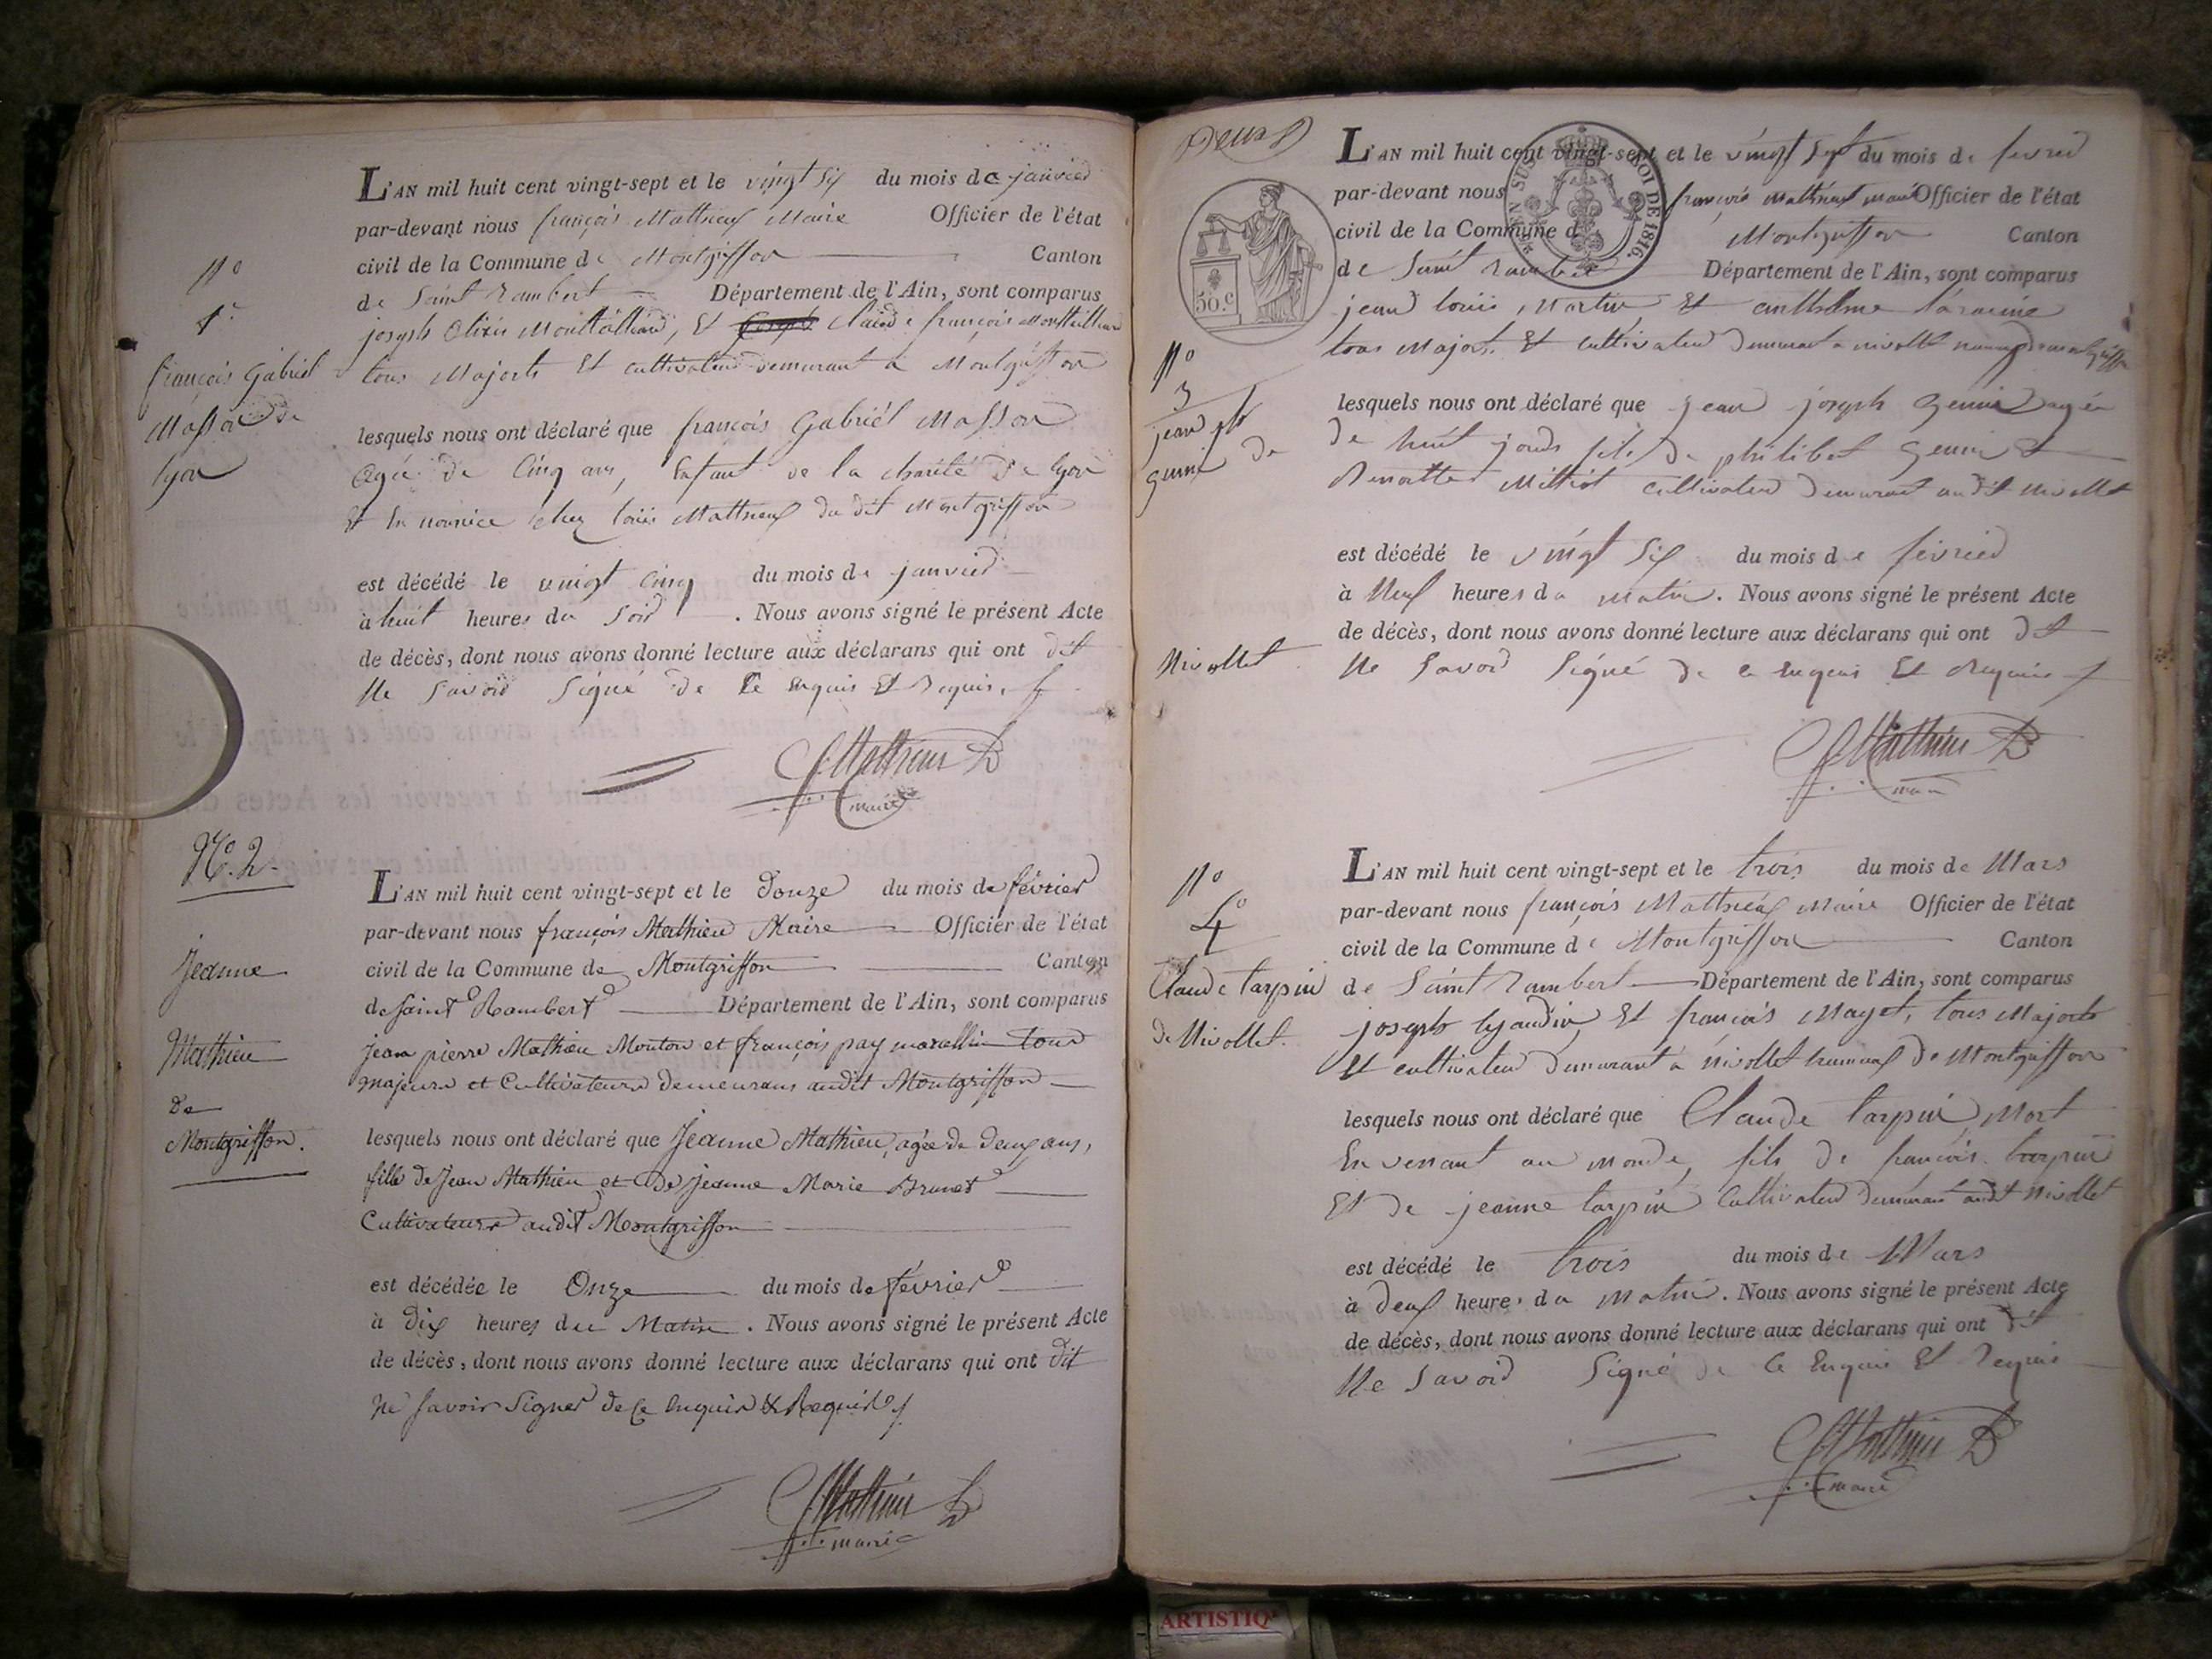 N°
1er
françois Gabriel
Masson de
lyon
L'AN mil huit cent vingt-sept et le vingt six du mois de janvier
par-devant nous françois Mathieux Maire Officier de l'état
civil de la Commune de Montgriffon Canton
de Saint rambert Département de l'Ain, sont comparus
joseph Montillard, Et Claude françois Montillard
tous Majorts Et cultivateur demurant a Montgriffon
lesquels nous ont déclaré que françois Gabriel Masson
agée de Cinq ans, Enfant de la charité De lyon
Et En nourice chez louis Mathieux du dit Montgriffon
est décédé le vingt cinq du mois de janvier
à huit heures du soir. Nous avons signé le présent Acte
de décès, dont nous avons donné lecture aux déclarans qui ont dit
Ne savoir signé de Ce Enquis Et Requis
Mathieu
maire
N°. 2.
Jeanne
Mathieu
De
Montgriffon.
L'AN mil huit cent vingt-sept et le Douze du mois de février
par-devant nous françois Mathieu Maire Officier de l'état
civil de la Commune de Montgriffon Canton
de Saint Rambert Département de l'Ain, sont comparus
Jean pierre Mathieu Mouton et françois pay tous
majeurs et Cultivateurs demeurans audit Montgriffon
lesquels nous ont déclaré que Jeanne Mathieu, agée de deux ans,
fille de Jean Mathieu et De Jeanne Marie Brunet
Cultivateurs audit Montgriffon
est décédée le Onze du mois de février
à dix heures du Matin. Nous avons signé le présent Acte
de décès, dont nous avons donné lecture aux déclarans qui ont dit
Ne savoir Signer de Ce Enquis & Requis
Mathieu
maire
Deux
50.C
SOI DE 1816.
N°
3
jean jh
genin de
Nivollet
L'AN mil huit cent vingt-sept et le vingt sept du mois de fevrier
par-devant nous françois Mathieux maire Officier de l'état
civil de la Commune de Montgriffon Canton
de Saint rambert Département de l'Ain, sont comparus
jean louis Martin Et anthelme
tous Majorts Et cultivateur demurant a nivollet hameau de montgriffon
lesquels nous ont déclaré que jean joseph genin agée
de huit jours fils de philibert genin Et
Benoitte Milliot cultivateur demurant audit nivollet
est décédé le vingt six du mois de fevrier
à Neuf heures du matin. Nous avons signé le présent Acte
de décès, dont nous avons donné lecture aux déclarans qui ont dit
Ne savoir signé de ce enquis Et requis
Mathieu
maire
N°
4°
Claude tarpin
de Nivollet.
L'AN mil huit cent vingt-sept et le trois du mois de Mars
par-devant nous françois Mathieux Maire Officier de l'état
civil de la Commune de Montgriffon Canton
de Saint rambert Département de l'Ain, sont comparus
joseph lyaudin Et françois Mayet, tous Majorts
Et cultivateur demurant a nivollet hameau de Montgriffon
lesquels nous ont déclaré que Claude tarpin, Mort
En venant au monde, fils de françois tarpin
Et de jeanne tarpin Cultivateur demurant audit nivollet
est décédé le trois du mois de Mars
à deux heures du matin. Nous avons signé le présent Acte
de décès, dont nous avons donné lecture aux déclarans qui ont dit
Ne savoir Signé de Ce Enquis Et requis
Mathieu
maire
ARTISTIQ'